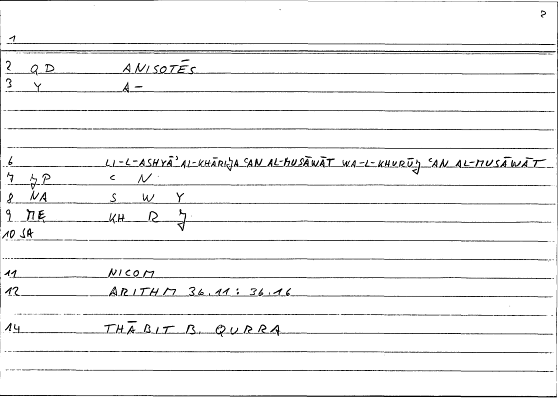 2
1
2 QD ANISOTĒS
3 Y A-
6 LI-L-ASHYĀʾ AL-KHĀRIJA ʿAN AL-MUSĀWĀT WA-L-KHURŪJ ʿAN AL-MUSĀWĀT
7 JP ʿ N
8 NA S W Y
9 ME KH R J
10 SA
11 NICOM
12 ARITHM 36.11 : 36.16
14 THĀBIT B. QURRA